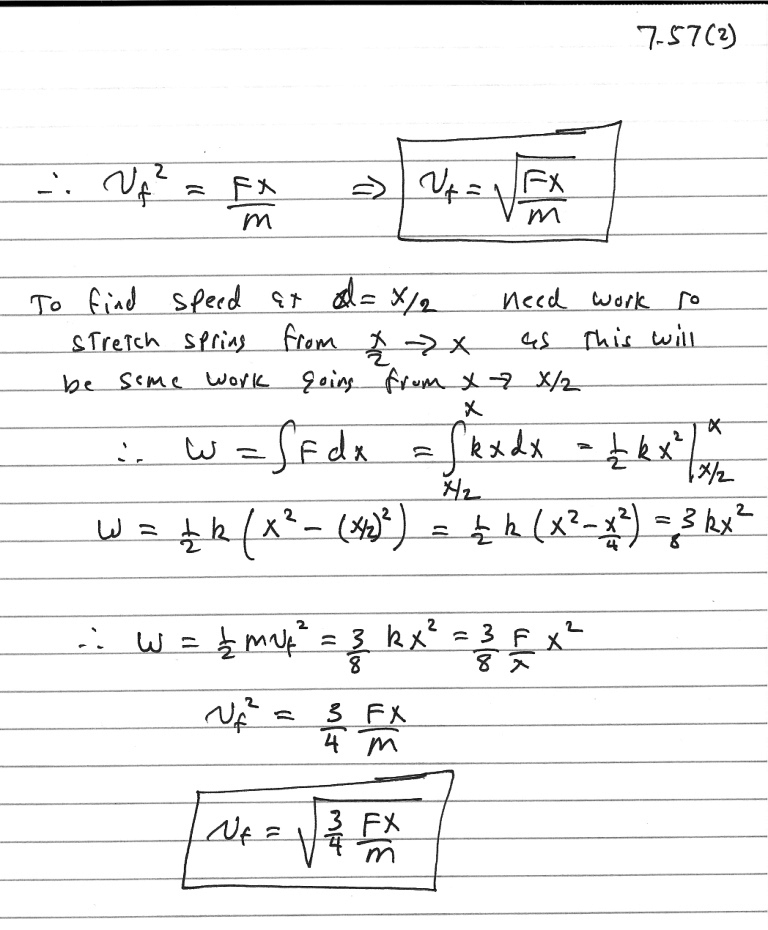 7.57(2)
∴ v_f² = Fx/m ⇒ v_f = √(Fx/m)
To find speed at d = x/2 need work to
stretch spring from x/2 → x as this will
be same work going from x → x/2
∴ W = ∫F dx = ∫_{x/2}^{x} kx dx = 1/2 kx² |_{x/2}^{x}
W = 1/2 k (x² - (x/2)²) = 1/2 k (x² - x²/4) = 3/8 kx²
∴ W = 1/2 mv_f² = 3/8 kx² = 3/8 F/x x²
v_f² = 3/4 Fx/m
v_f = √(3/4 Fx/m)